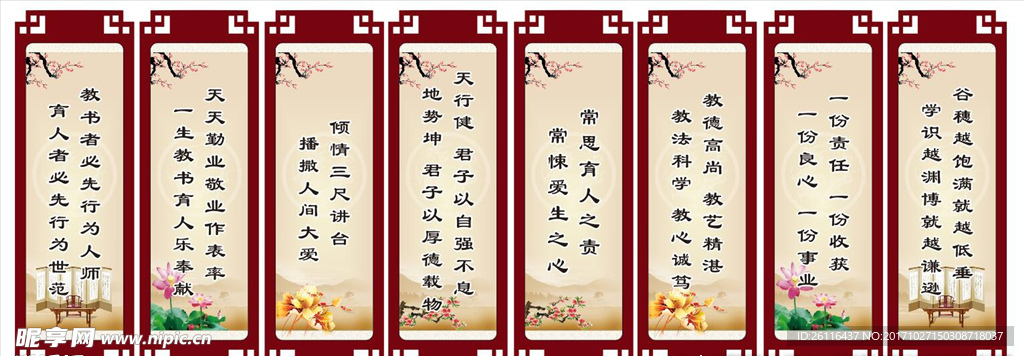 教书者必先行为人师
育人者必先行为世范
天天勤业敬业作表率
一生教书育人乐奉献
倾情三尺讲台
播撒人间大爱
天行健 君子以自强不息
地势坤 君子以厚德载物
常思育人之责
常悚爱生之心
教德高尚 教艺精湛
教法科学 教心诚笃
一份责任 一份收获
一份良心 一份事业
谷穗越饱满就越低垂
学识越渊博就越谦逊
昵享网 www.nipic.cn
ID:26116437 NO:20171027150308718037